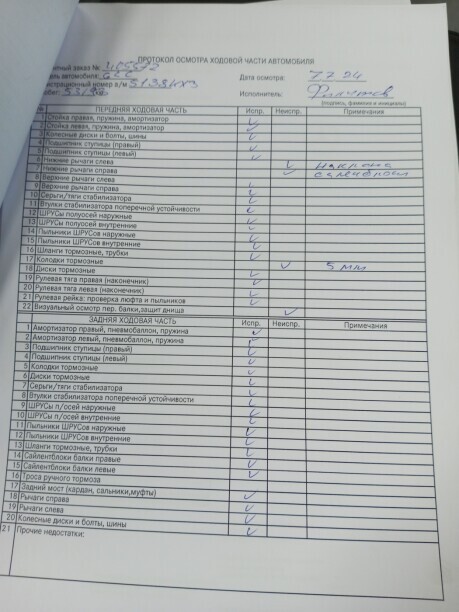 ПРОТОКОЛ ОСМОТРА ХОДОВОЙ ЧАСТИ АВТОМОБИЛЯ
заказ №
автомобиля: GLC Дата осмотра: 7.7.24
номер а/м Исполнитель:
(подпись, фамилия и инициалы)
№ ПЕРЕДНЯЯ ХОДОВАЯ ЧАСТЬ Испр. Неиспр. Примечания
1 Стойка правая, пружина, амортизатор
2 Стойка левая, пружина, амортизатор
3 Колесные диски и болты, шины
4 Подшипник ступицы (правый)
5 Подшипник ступицы (левый)
6 Нижние рычаги слева
7 Нижние рычаги справа
8 Верхние рычаги слева
9 Верхние рычаги справа
10 Серьги/тяги стабилизатора
11 Втулки стабилизатора поперечной устойчивости
12 ШРУСы полуосей наружные
13 ШРУСы полуосей внутренние
14 Пыльники ШРУСов наружные
15 Пыльники ШРУСов внутренние
16 Шланги тормозные, трубки
17 Колодки тормозные
18 Диски тормозные 5 мм
19 Рулевая тяга правая (наконечник)
20 Рулевая тяга левая (наконечник)
21 Рулевая рейка: проверка люфта и пыльников
22 Визуальный осмотр пер. балки, защит днища
ЗАДНЯЯ ХОДОВАЯ ЧАСТЬ Испр. Неиспр. Примечания
1 Амортизатор правый, пневмобаллон, пружина
2 Амортизатор левый, пневмобаллон, пружина
3 Подшипник ступицы (правый)
4 Подшипник ступицы (левый)
5 Колодки тормозные
6 Диски тормозные
7 Серьги/тяги стабилизатора
8 Втулки стабилизатора поперечной устойчивости
9 ШРУСы п/осей наружные
10 ШРУСы п/осей внутренние
11 Пыльники ШРУСов наружные
12 Пыльники ШРУСов внутренние
13 Шланги тормозные, трубки
14 Сайлентблоки балки правые
15 Сайлентблоки балки левые
16 Троса ручного тормоза
17 Задний мост (кардан, сальники,муфты)
18 Рычаги справа
19 Рычаги слева
20 Колесные диски и болты, шины
21 Прочие недостатки: